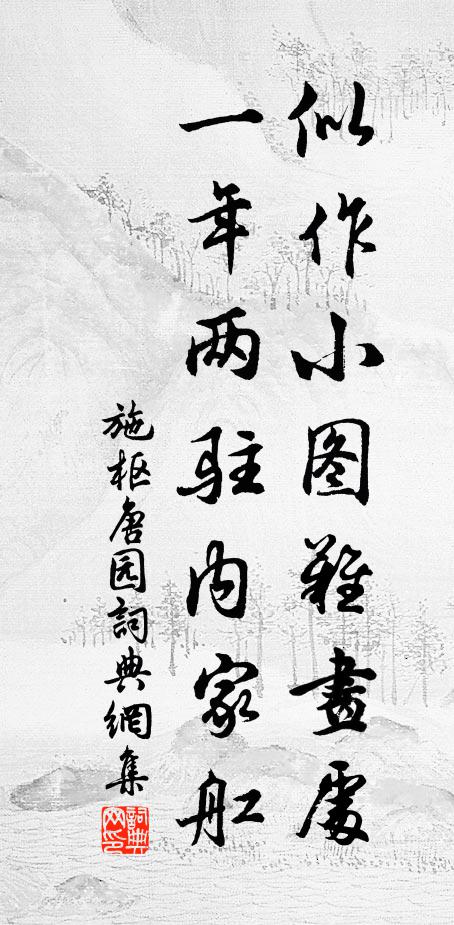 似作小图難畫處
一年两驻内家舡
施枢唐园詞典網集
詞典网印